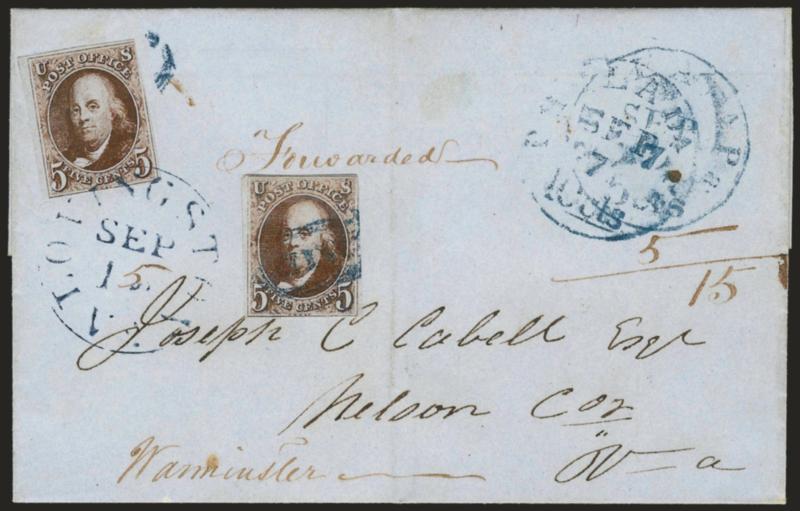 U S
POST OFFICE
5 FIVE CENTS 5
Forwarded
U S
POST OFFICE
5 FIVE CENTS 5
LOVINGSTON
SEP
15
5
15
Joseph C Cabell Esqr
Nelson Coy
Warminster
Va